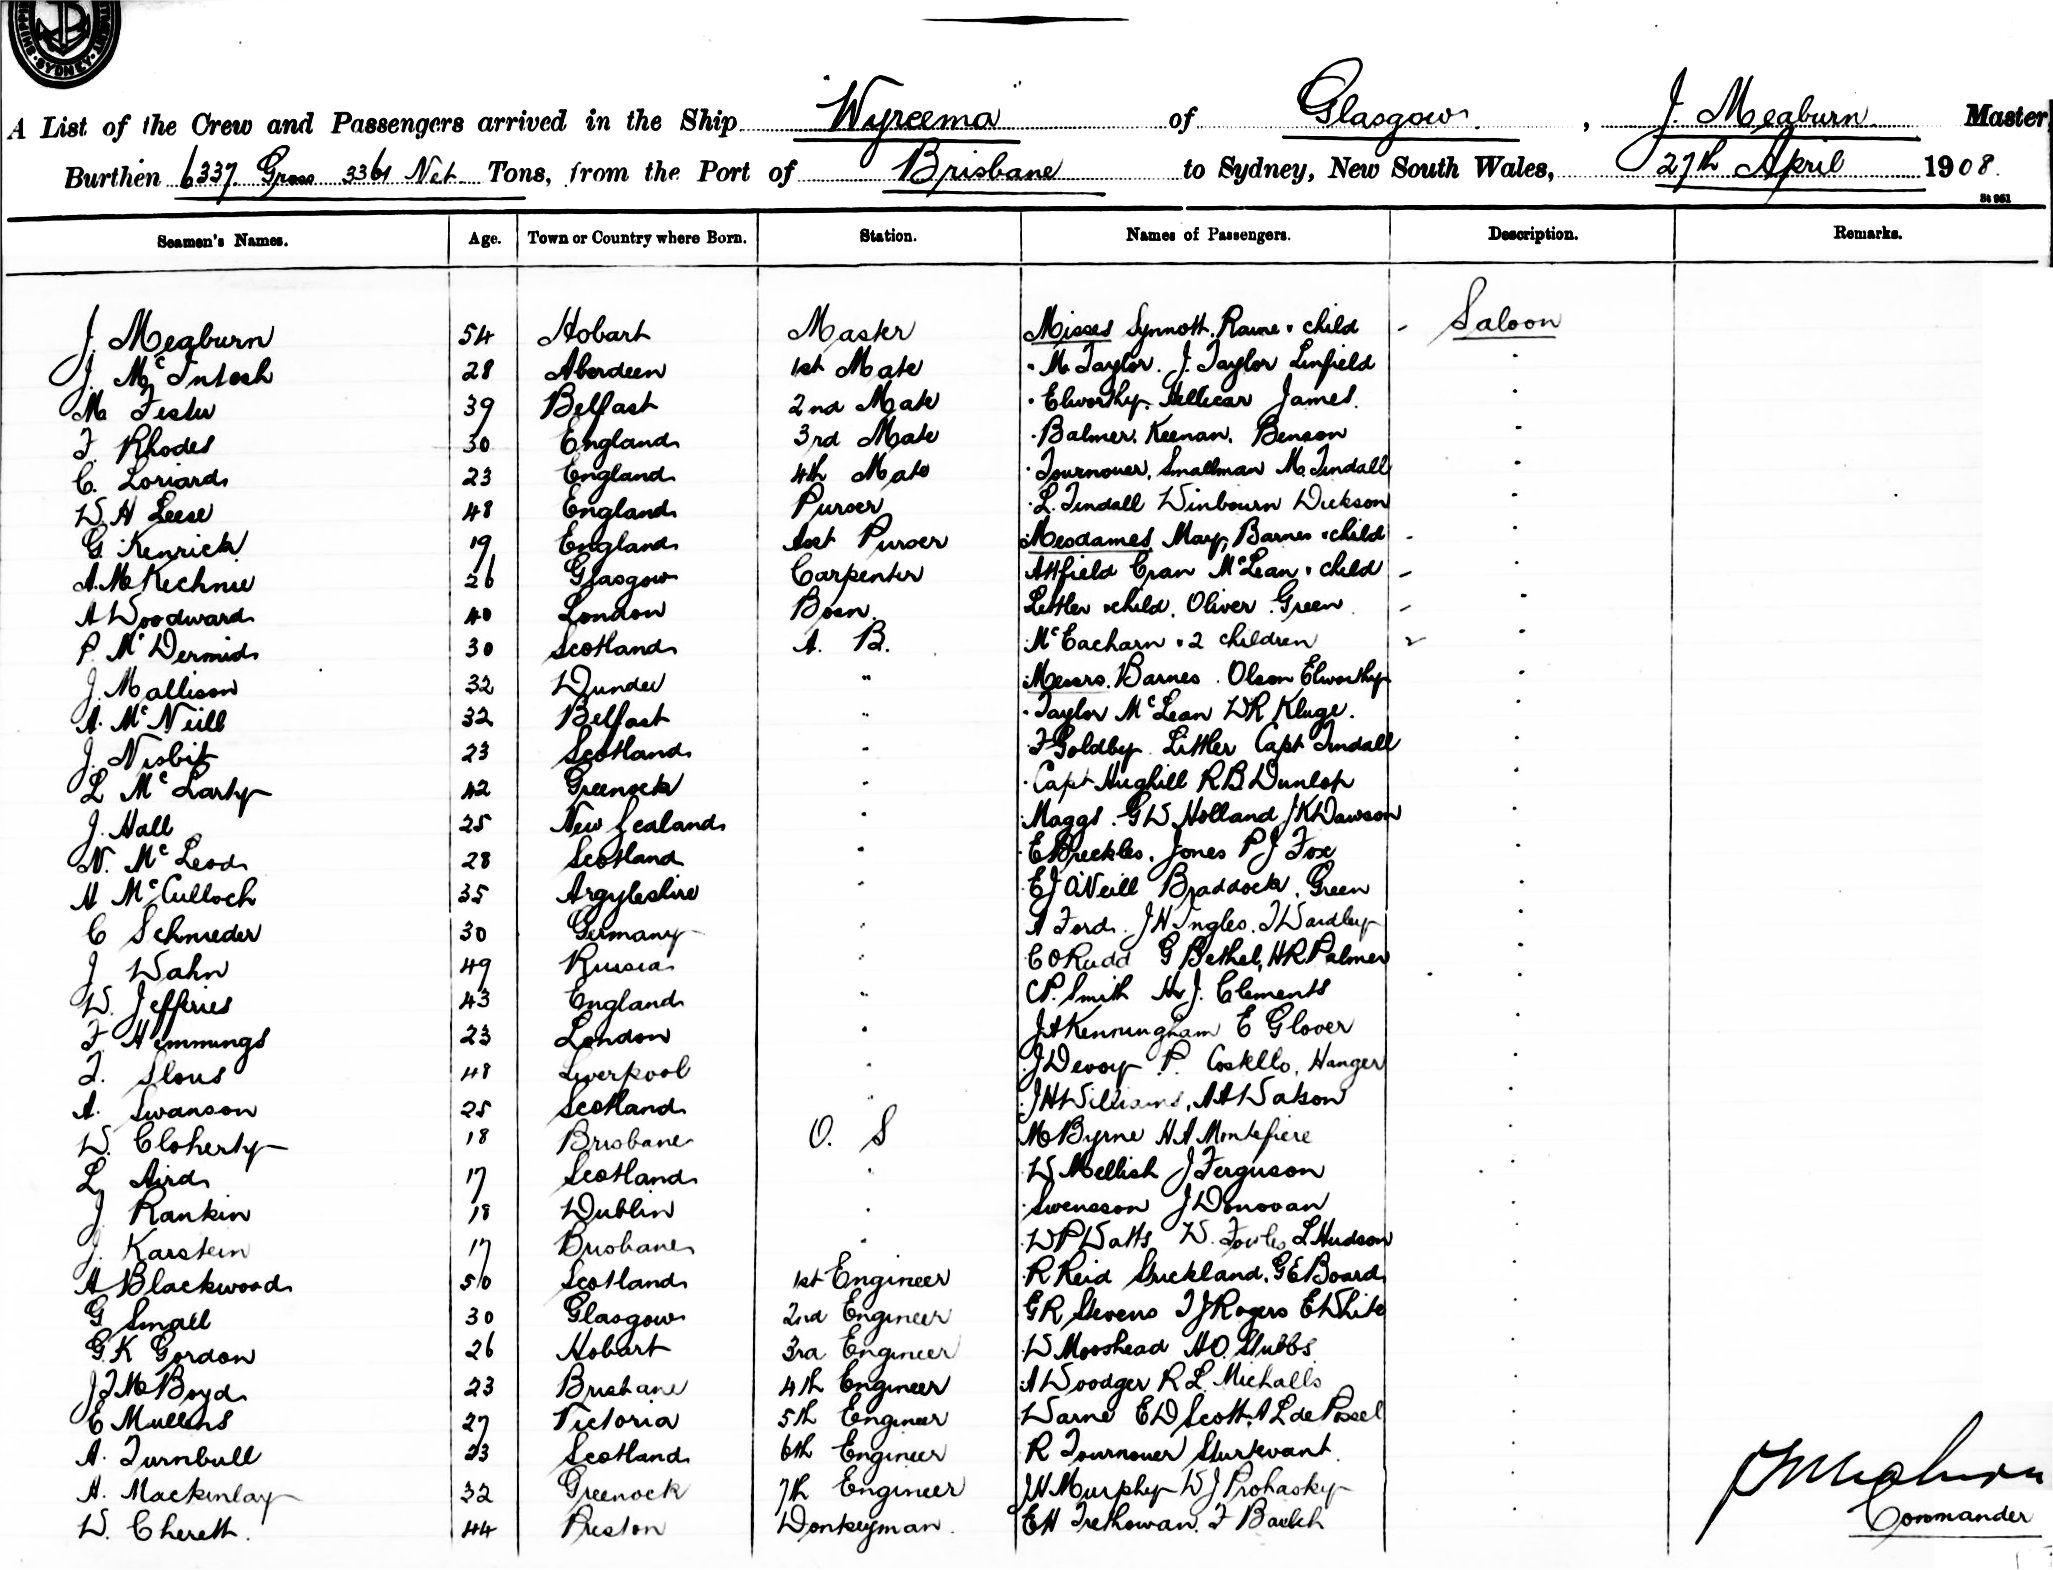 SYDNEY
A List of the Crew and Passengers arrived in the Ship Wyreema of Glasgow, J. Megburn Master
Burthen 6337 Gross 3361 Net Tons, from the Port of Brisbane to Sydney, New South Wales, 27th April 1908.
St 961
Seamen's Names. Age. Town or Country where Born. Station. Names of Passengers. Description. Remarks.
J. Megburn 54 Hobart Master Misses Synnott. Raine & child - Saloon
J. McIntosh 28 Aberdeen 1st Mate " M Taylor. J. Taylor Linfield "
M 39 Belfast 2nd Mate " Elworthy. Hellicar James. "
F. Rhodes 30 England 3rd Mate " Balmer. Keenan. Benson "
C. Loriard 23 England 4th Mate " Tournouer. Smallman M. Tindall "
W H Leese 48 England Purser " L. Tindall Winbourn Dickson "
G. Kenrick 19 England Asst Purser Mesdames Mary, Barnes & child - "
A. McKechnie 26 Glasgow Carpenter Attfield Cran McLean & child - "
A Woodward 40 London Bosn. Littler & child. Oliver. Green - "
P. McDermid 30 Scotland A. B. McEacharn & 2 children 2 "
J. Mallison 32 Dundee " Messrs. Barnes. Olson Elworthy "
A. McNeill 32 Belfast " " Taylor McLean WR Kluge. "
J. Nisbit 23 Scotland " F Goldby. Littler Capt Tindall "
L McLarty 42 Greenock " Capt Hughill R.B. Dunlop "
J. Hall 25 New Zealand " Maggs. GW Holland JK Dawson "
N. McLeod 28 Scotland " E Breckles. Jones P J Fox "
A McCulloch 35 Argyleshire " EJ O'Neill Braddock. Green "
C Schnieder 30 Germany " A Ford. JH Ingles. T Wardley "
J Wahn 49 Russia " C O Rudd G Bethel, HR Palmer "
W. Jefferies 43 England " CP. Smith J. Clements "
F Hemmings 23 London " JA Kenningham E Glover "
T. Slous 48 Liverpool " J Devoy P. Costello, Hanger "
A. Swanson 25 Scotland " JH Williams, AA Watson "
W. Cloherty 18 Brisbane O. S M Byrne HA Montefiere "
L Aird 17 Scotland " W Mellish J Ferguson "
J Rankin 18 Dublin " Swensson J Donovan "
J. Karstein 17 Brisbane " WP Watts W. Fowles L Hudson "
A Blackwood 50 Scotland 1st Engineer R Reid Strickland. GE Board "
G Small 30 Glasgow 2nd Engineer GR Stevens TJ Rogers E White "
G.K Gordon 26 Hobart 3rd Engineer W Mooshead HO. Stubbs "
J T M Boyd 23 Brisbane 4th Engineer A Woodger R L. Michalls "
E Mullens 27 Victoria 5th Engineer Warne ED Scott. A L de Possel "
A. Turnbull 23 Scotland 6th Engineer R Tournouer Sturtevant "
A. Mackinlay 32 Greenock 7th Engineer JH Murphy WJ Prohasky "
W. Chereth. 44 Preston Donkeyman. EH Trethowan. F Balch "
J Megburn
Commander